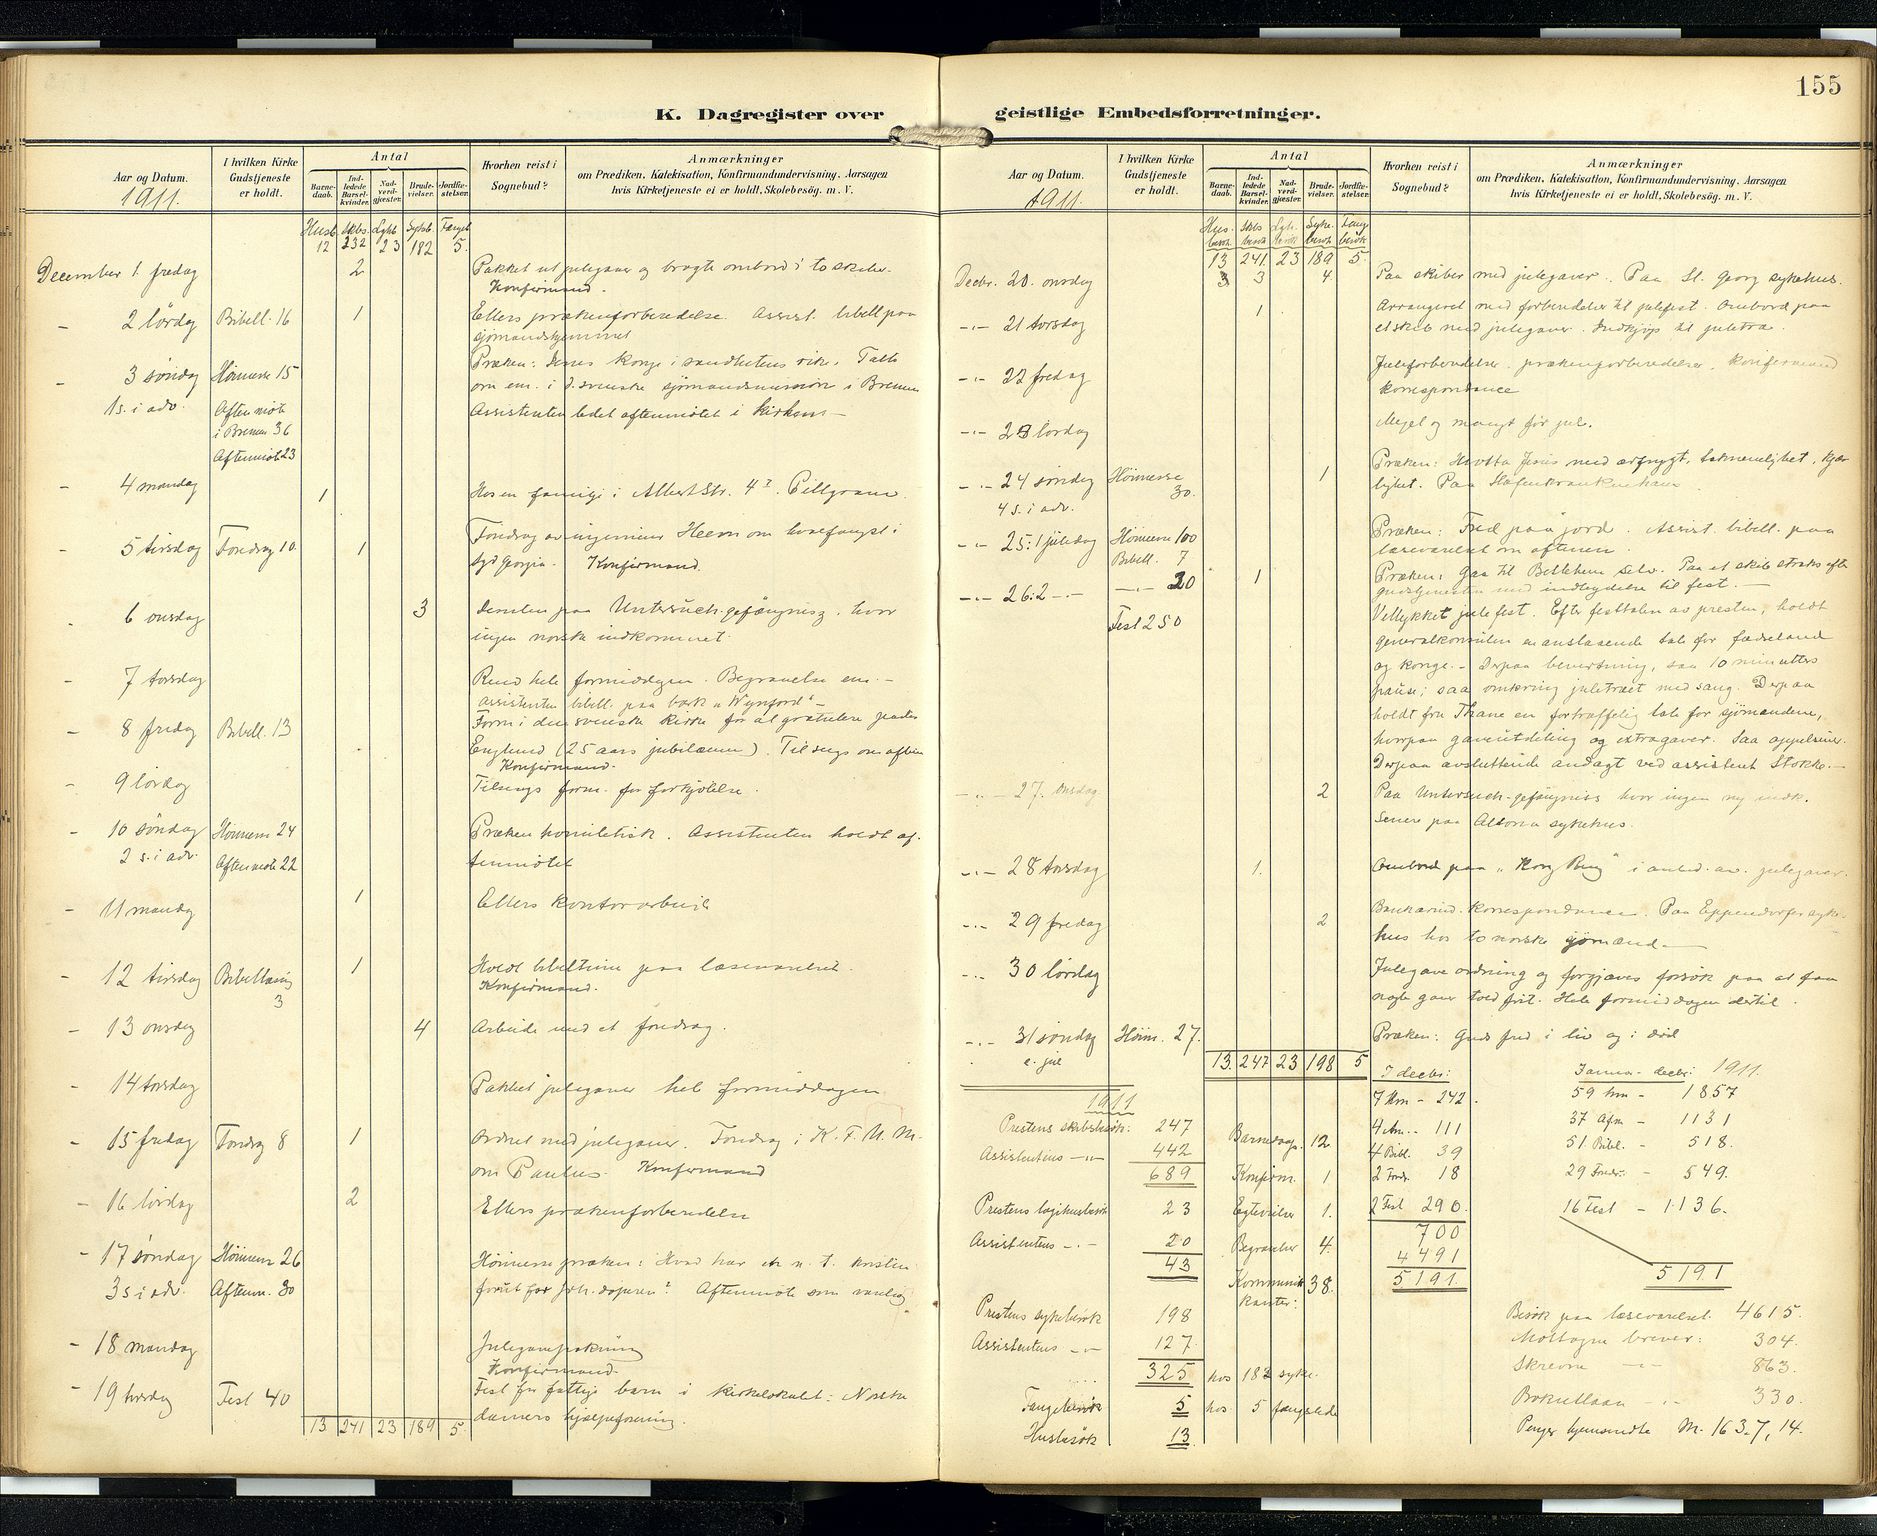 155
K. Dagregister over geistlige Embedsforretninger.
Aar og Datum.
1911.
I hvilken Kirke Gudstjeneste er holdt.
Antal
Barnedaab.
Indledede Barselkvinder.
Nadverdgjæster.
Brudevielser.
Jordfæstelser.
Hvorhen reist i Sognebud?
Anmærkninger
om Prædiken, Katekisation, Konfirmandundervisning, Aarsagen
hvis Kirketjeneste ei er holdt, Skolebesøg. m. V.
Husb. Skbs. Lghb Sykb. Fængb.
12 232 23 182 5.
December 1. fredag 2 Pakket ut julegaver og bragte ombord i to skibe.
Konfirmand.
- 2 lördag Bibell. 16 1 Ellers prækenforberedelse. Assist. bibell. paa
sjömandshjemmet
- 3 söndag Höimesse 15 Præken: Jesus konge i sandhetens rike. Talte
1 s. i adv. Aftenmöte om em. i d. svenske sjömandsmission i Bremen
i Bremen 36 Assistenten ledet aftenmötet i kirken –
Aftenmöte 23
- 4 mandag 1 Hos en familje i Albertstr. 4 Pillgram.
- 5 tirsdag Foredrag 10. 1 Foredrag av ingeniör om hvalfangst i
Syd Georgia. Konfirmand.
- 6 onsdag 3 Desuten paa Untersuch.gefängnisz, hvor
ingen norske indkommet.
- 7 torsdag hele formiddagen. Begravelse em. –
assistenten bibell. paa bark "Wynford" –
- 8 fredag Bibell. 13 Form. i den svenske kirke for at gratulere pastor
Englund (25 aars jubilæum). Tilsengs om aften
Konfirmand.
- 9 lördag Tilsengs form. for forkjölelse.
- 10 söndag Höimesse 24 Præken homiletisk. Assistenten holdt af-
2 s. i adv. Aftenmöte 22 tenmötet
- 11 mandag 1 Ellers kontorarbeide
- 12 tirsdag Bibellæsning 3 1 Holdt bibeltime paa læseværelset.
Konfirmand.
- 13 onsdag 4 Arbeide med et foredrag.
- 14 torsdag Pakket julegaver hele formiddagen
- 15 fredag Foredrag 8 1 Ordnet med julegaver. Foredrag i K.F.U.M.
om Paulus. Konfirmand
- 16 lördag 2 Ellers prækenforberedelse
- 17 söndag Höimesse 26 Höimessepræken: Hvad har en n. t. kristen
3 s i adv. Aftenm. 30 forut for Joh. döperen? Aftenmöte som vanlig.
- 18 mandag Julegavepakning
Konfirmand.
- 19 tirsdag Fest 40 Fest for fattige barn i kirkelokalet. Norske
13 241 23 189 5. damers hjælpeforening.
Aar og Datum.
1911.
I hvilken Kirke Gudstjeneste er holdt.
Antal
Barnedaab.
Indledede Barselkvinder.
Nadverdgjæster.
Brudevielser.
Jordfæstelser.
Hvorhen reist i Sognebud?
Anmærkninger
om Prædiken, Katekisation, Konfirmandundervisning, Aarsagen
hvis Kirketjeneste ei er holdt, Skolebesøg. m. V.
Husbesök Skbsbesök Lghbesök Sykebesök Fangbesök
13 241. 23 189 5.
Decbr. 20. onsdag 3 3 4. Paa skiber med julegaver. Paa St. Georg sykehus.
-"- 21 torsdag 1 Arrangeret med forberedelser til julefest. Ombord paa
et skib med julegaver. Indkjöp til juletræ.
-"- 22 fredag Juleforberedelser, prækenforberedelser, konfirmand
korrespondance
-"- 23 lördag Meget og mangt før jul.
-"- 24 söndag Höimesse 30. 1 Præken: Motta Jesus med ærfrygt, taknemlighet, kjær-
4 s. i adv. lighet. Paa Hafenkrankenhaus
-"- 25: 1 juledag Höimesse 100 Præken: Fred paa jord. Assist bibell. paa
Bibell. 7 læseværelset om aftenen.
-"- 26: 2 -"- -"- 20 1 Præken: Gaa til Betlehem selv. Paa et skib straks efter
gudstjenesten med indbydelse til fest. –
Fest 250 Vellykket julefest. Efter festtalen av presten, holdt
generalkonsulen en anslaaende tale for fædreland
og konge. – Derpaa bevertning, saa 10 minutters
pause; saa omkring juletræet med sang. Derpaa
holdt fru Thane en fortræffelig tale for sjömændene,
hvorpaa gaveutdeling og extragaver. Saa appelsiner.
Derpaa avsluttende andagt ved assistent Stokke. –
-"- 27. onsdag 2 Paa Untersuch.gefängniss hvor ingen ny indk.
Senere paa Altona sykehus.
-"- 28 torsdag 1. Ombord paa "Kong Ring" i anled. av. julegaver.
-"- 29 fredag 2 korrespondance. Paa Eppendorfer syke-
hus hos to norske sjömænd –
-"- 30 lördag Julegave ordning og forgjæves forsök paa at faa
nogle gaver toldfrit. Hele formiddagen dertil.
-"- 31 söndag Höim. 27. Præken: Guds fred i liv og i död
e. jul 13. 247 23 198 5
1911
Prestens skibsbesök: 247
Assistentens -"- 442
689
Prestens logihusbesök 23
Assistentens -"- 20
43
Prestens sykebesök 198
Assistentens -"- 127.
325 hos 182 syke.
Fangebesök 5 hos 5 fængslede
Husbesök 13
Barnedaap. 12.
Konfirm. 1
Egtevielser 1.
Begravelser 4.
Kommunikanter: 38.
I decbr:
7 Hm – 242.
4 Am. - 111
4 Bibl. 39
2 Fordr. 18
2 Fest 290.
700
4491
5191.
Januar – decbr. 1911.
59 hm – 1857
37 Afm – 1131
51 Bibl. – 518.
29 Fordr. – 549.
16 Fest – 1136.
5191
Besök paa læseværelset. 4615.
Mottagne brever: 304.
Skrevne -"- 863.
Bokutlaan -"- 330.
Penger hjemsendte M. 1637,14.